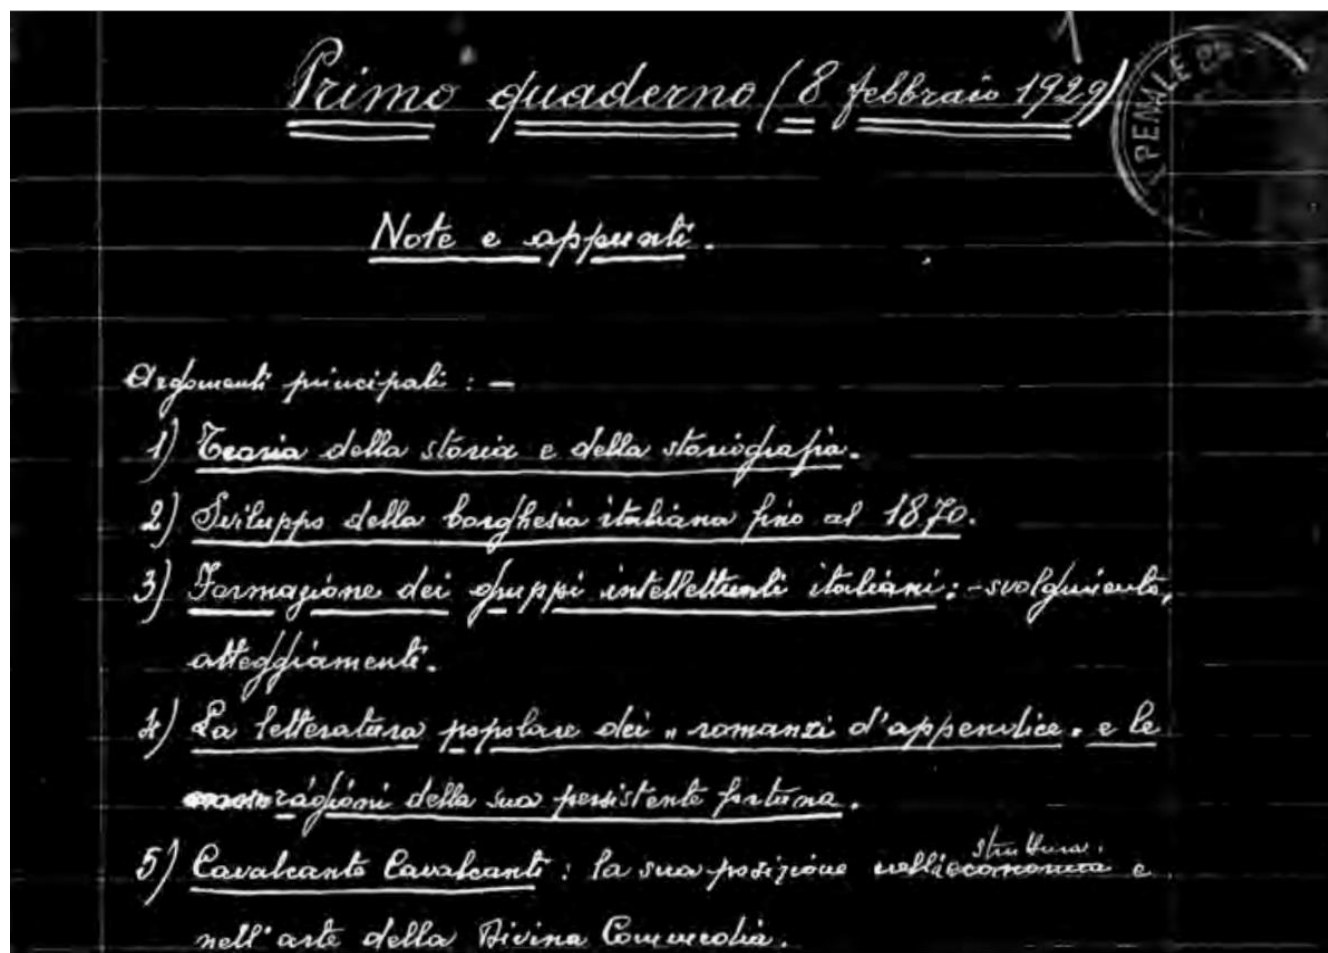 1
Primo quaderno (8 febbraio 1929)
PENALE
Note e appunti.
Argomenti principali : —
1) Teoria della storia e della storiografia.
2) Sviluppo della borghesia italiana fino al 1870.
3) Formazione dei gruppi intellettuali italiani: - svolgimento,
atteggiamenti.
4) La letteratura popolare dei „ romanzi d'appendice " e le
ragioni della sua persistente fortuna.
struttura
5) Cavalcante Cavalcanti : la sua posizione nell'economia e
nell'arte della Divina Commedia.